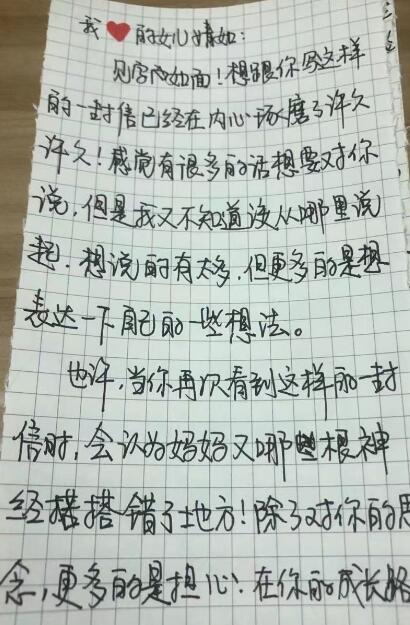 我❤的女儿婧如:
见字而如面!想跟你写这样
的一封信已经在内心琢磨了许久
许久!感觉有很多的话想要对你
说,但是我又不知道该从哪里说
起.想说的有太多,但更多的是想
表达一下自己的一些想法。
也许,当你再次看到这样的一封
信时,会认为妈妈又哪些根神
经搭错了地方!除了对你的思
念,更多的是担心!在你的成长路